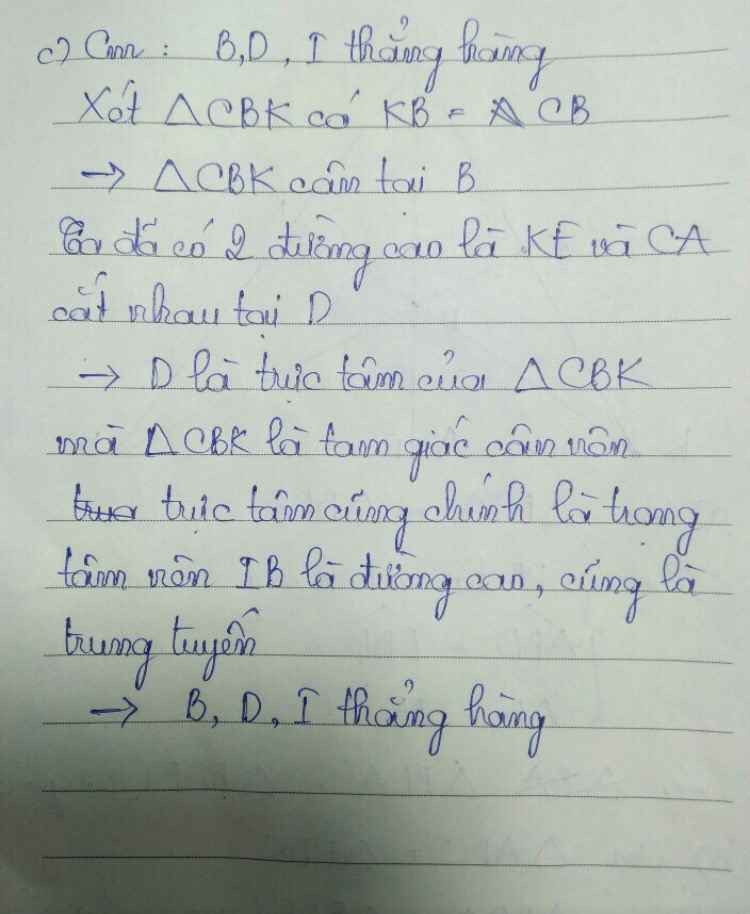 c) Cm : B,D, I thẳng hàng
Xét △CBK có KB = CB
→ △CBK cân tại B
Ta đã có 2 đường cao là KE và CA
cắt nhau tại D
→ D là trực tâm của △CBK
mà △CBK là tam giác cân nên
trực tâm cũng chính là trọng
tâm nên IB là đường cao, cũng là
trung tuyến
→ B, D, I thẳng hàng